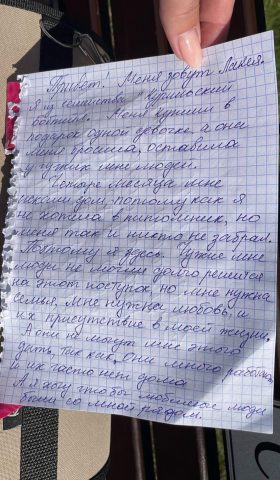 Привет! Меня зовут Лакей.
Я из семейства "Курильский
бобтейл". Меня купили в
подарок одной девочке, а она
меня бросила, оставила
у чужих мне людей.
Четыре месяца мне
искали дом, потому как я
не хотела в питомник, но
меня так и никто не забрал.
Поэтому я здесь. Чужие мне
люди не могли долго решится
на этот поступок, но мне нужна
семья. Мне нужна любовь, и
их присутствие в моей жизни.
А они не могут мне этого
дать, так как они много работают,
и их часто нет дома
А я хочу чтобы любимые люди
были со мной рядом.